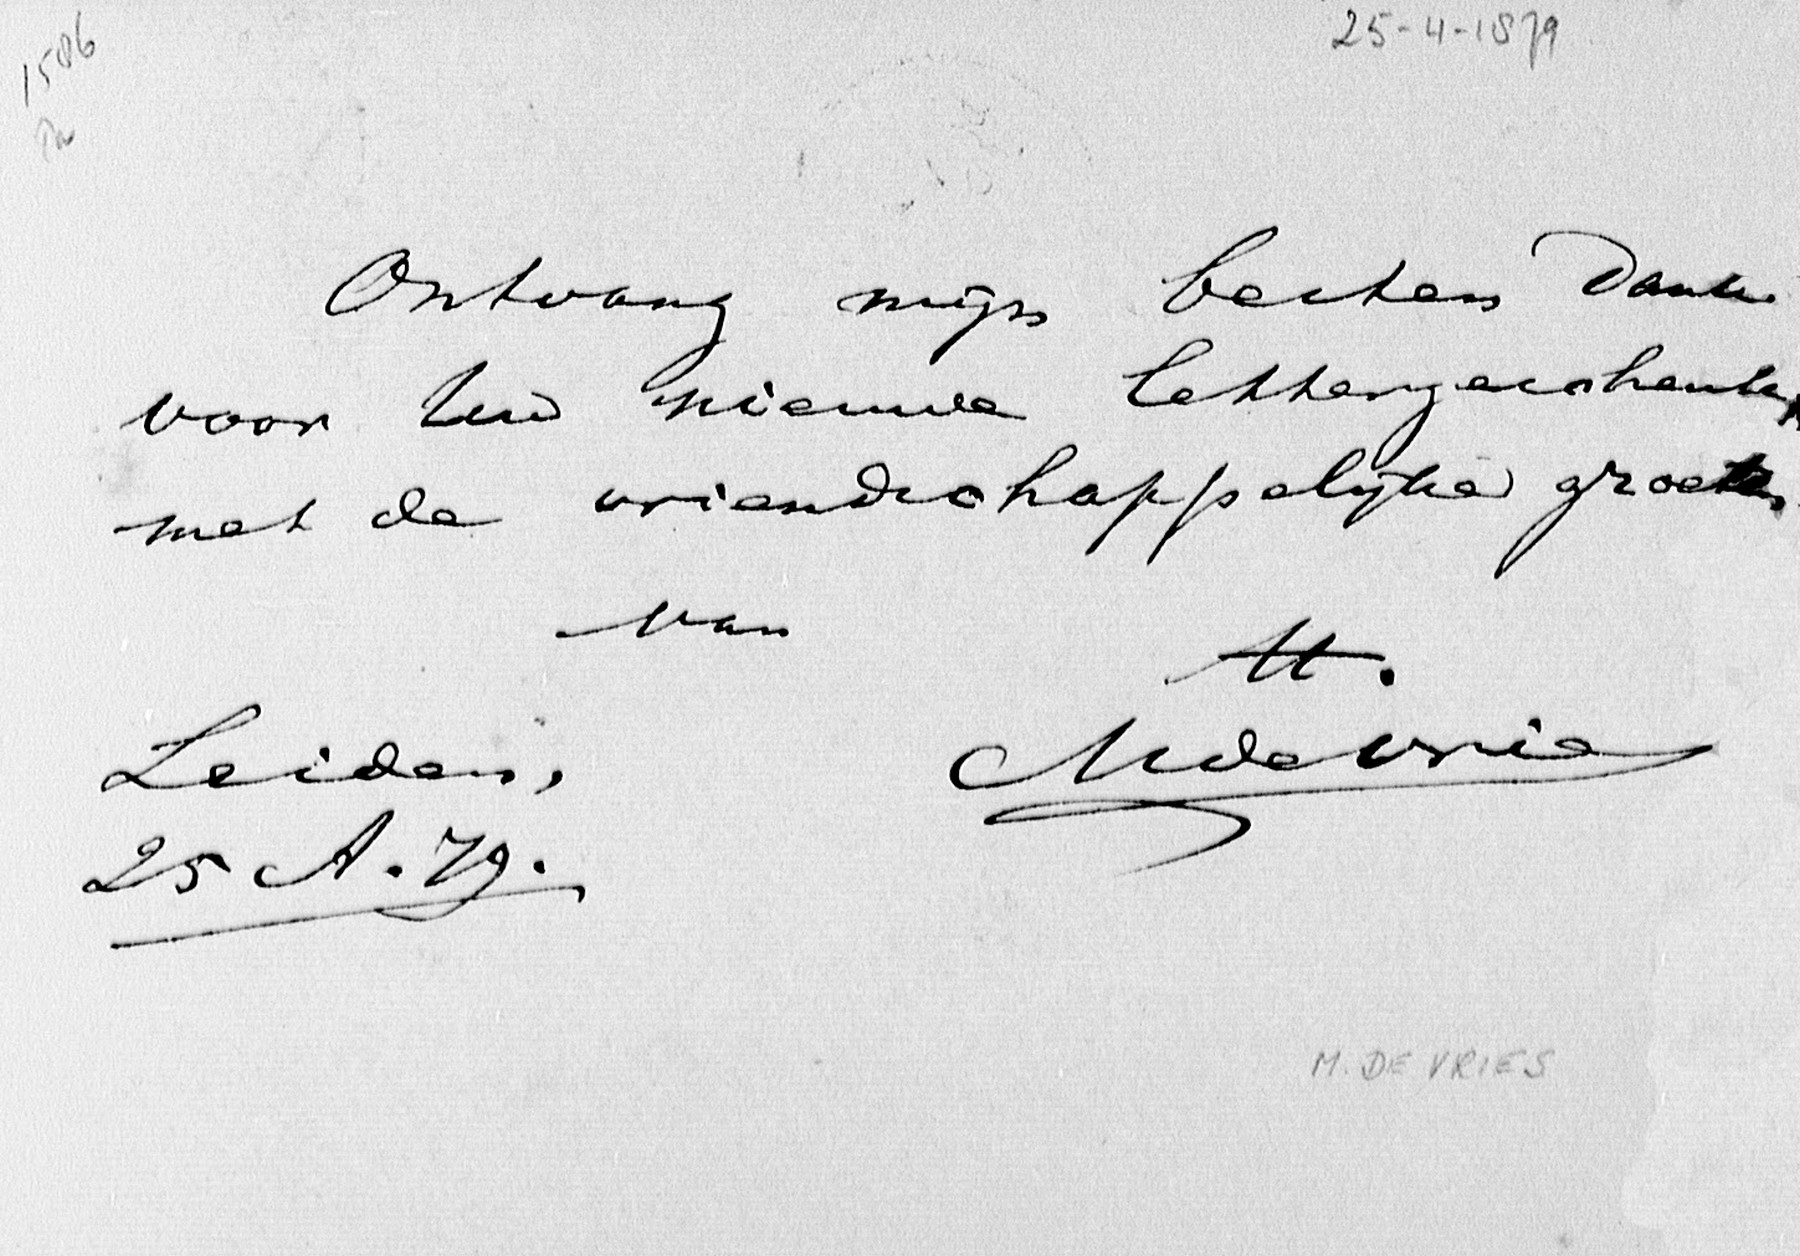 1586
25-4-1879
Ontvang mijn besten Dank
voor Uw nieuwe lettergeschenk,
met de vriendschappelijke groeten
van
tt.
MdeVries
Leiden,
25 A. 79.
M. DE VRIES